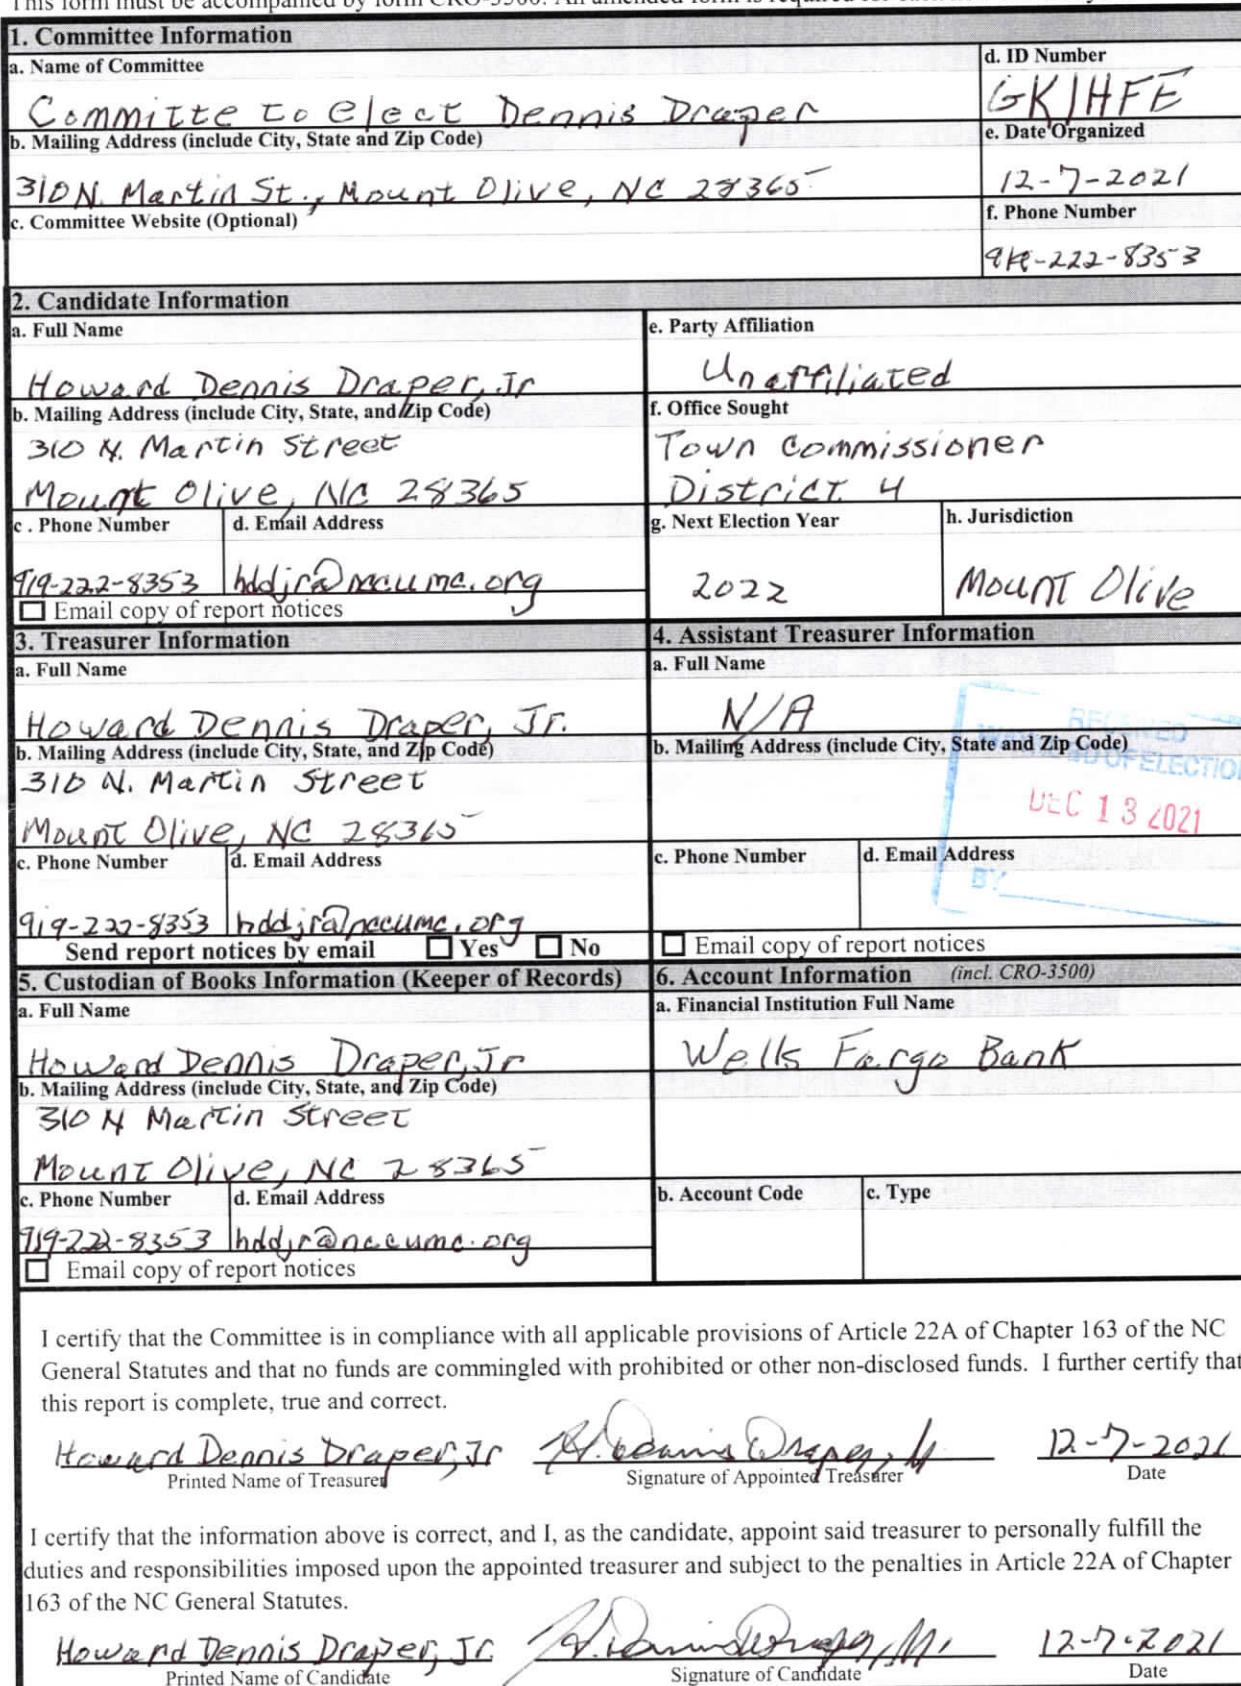 This form must be accompanied by form CRO-3500. An amended form is required for each
1. Committee Information
a. Name of Committee
Committe to elect Dennis Draper
d. ID Number
GK1HFE
b. Mailing Address (include City, State and Zip Code)
310 N. Martin St., Mount Olive, NC 28365
e. Date Organized
12-7-2021
c. Committee Website (Optional)
f. Phone Number
919-222-8353
2. Candidate Information
a. Full Name
Howard Dennis Draper, Jr
e. Party Affiliation
Unaffiliated
b. Mailing Address (include City, State, and Zip Code)
310 N. Martin Street
Mount Olive, NC 28365
f. Office Sought
Town Commissioner
District 4
c . Phone Number
919-222-8353
d. Email Address
hddjr@nccumc.org
Email copy of report notices
g. Next Election Year
2022
h. Jurisdiction
Mount Olive
3. Treasurer Information
a. Full Name
Howard Dennis Draper, Jr.
b. Mailing Address (include City, State, and Zip Code)
310 N. Martin Street
Mount Olive, NC 28365
c. Phone Number
919-222-8353
d. Email Address
hddjr@nccumc.org
Send report notices by email Yes No
4. Assistant Treasurer Information
a. Full Name
N/A
b. Mailing Address (include City, State and Zip Code)
RECEIVED
OF ELECTION
DEC 13 2021
BY
c. Phone Number
d. Email Address
Email copy of report notices
5. Custodian of Books Information (Keeper of Records)
a. Full Name
Howard Dennis Draper, Jr
b. Mailing Address (include City, State, and Zip Code)
310 N Martin Street
Mount Olive, NC 28365
c. Phone Number
919-222-8353
d. Email Address
hddjr@nccumc.org
Email copy of report notices
6. Account Information (incl. CRO-3500)
a. Financial Institution Full Name
Wells Fargo Bank
b. Account Code
c. Type
I certify that the Committee is in compliance with all applicable provisions of Article 22A of Chapter 163 of the NC
General Statutes and that no funds are commingled with prohibited or other non-disclosed funds. I further certify that
this report is complete, true and correct.
Howard Dennis Draper, Jr H. Dennis Draper, Jr 12-7-2021
Printed Name of Treasurer Signature of Appointed Treasurer Date
I certify that the information above is correct, and I, as the candidate, appoint said treasurer to personally fulfill the
duties and responsibilities imposed upon the appointed treasurer and subject to the penalties in Article 22A of Chapter
163 of the NC General Statutes.
Howard Dennis Draper, Jr. H. Dennis Draper, Jr. 12-7-2021
Printed Name of Candidate Signature of Candidate Date